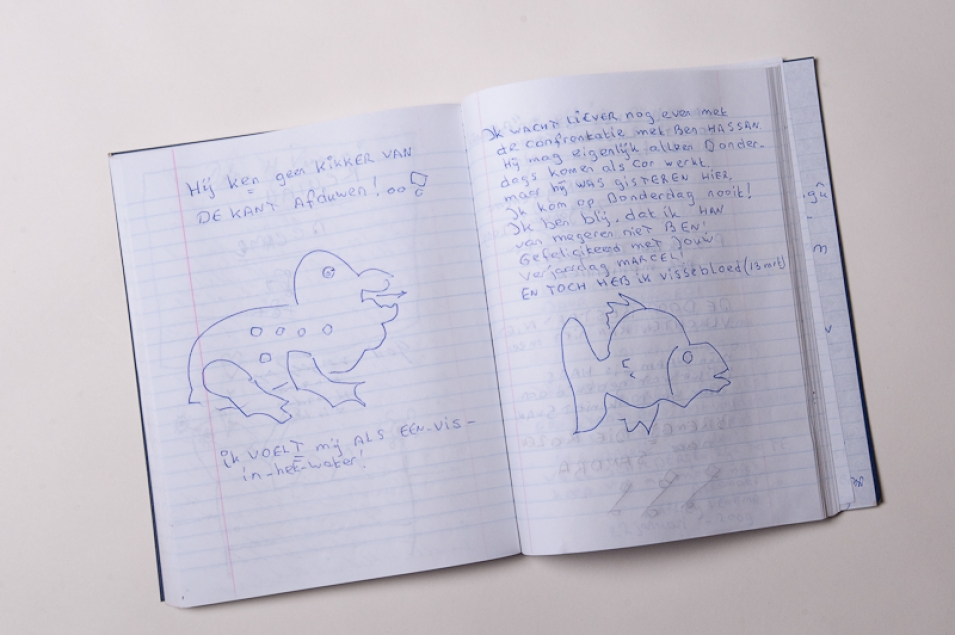 Hij ken geen KIKKER VAN
DE KANT AfduweN!
ik VOELT mij ALS EEN-VIS-
in-het-water!
Ik WACHT LIEVER nog even met
de confrontatie met Ben HASSAN.
Hij mag eigenlijk alleen Donder-
dags komen als Cor werkt.
maar hij WAS GISTEREN HIER,
Ik kom op Donderdag nooit!
Ik ben blij, dat ik HAN
van megeren niet BEN!
Gefeliciteerd met Jouw
verjaardag MARCEL!
EN TOCH HEB ik vissebloed (13 mrt)